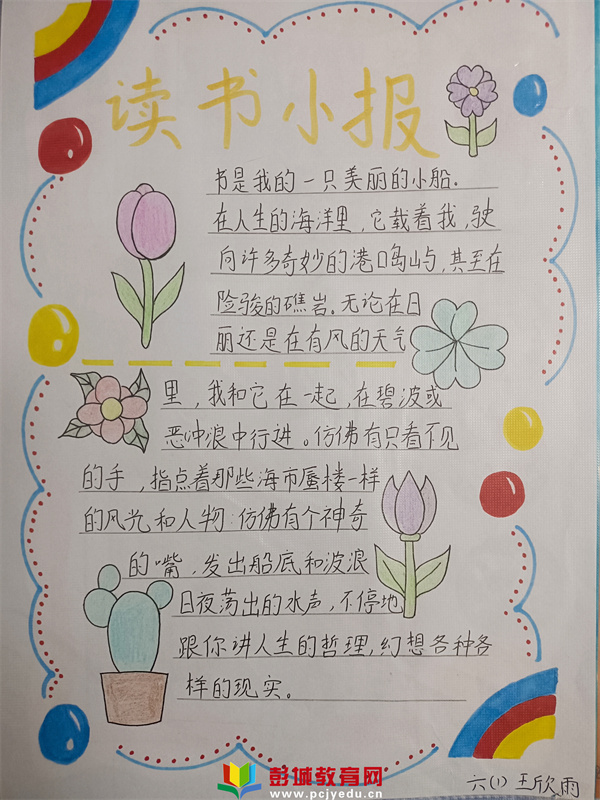 读书小报
书是我的一只美丽的小船.
在人生的海洋里,它载着我,驶
向许多奇妙的港口岛屿,其至在
险骏的礁岩.无论在日
丽还是在有风的天气
里,我和它在一起,在碧波或
恶冲浪中行进。仿佛有只看不见
的手,指点着那些海市蜃楼一样
的风光和人物:仿佛有个神奇
的嘴,发出船底和波浪
日夜荡出的水声,不停地
跟你讲人生的哲理,幻想各种各
样的现实。
彭城教育网
www.pcjyedu.cn
六(1)王欣雨